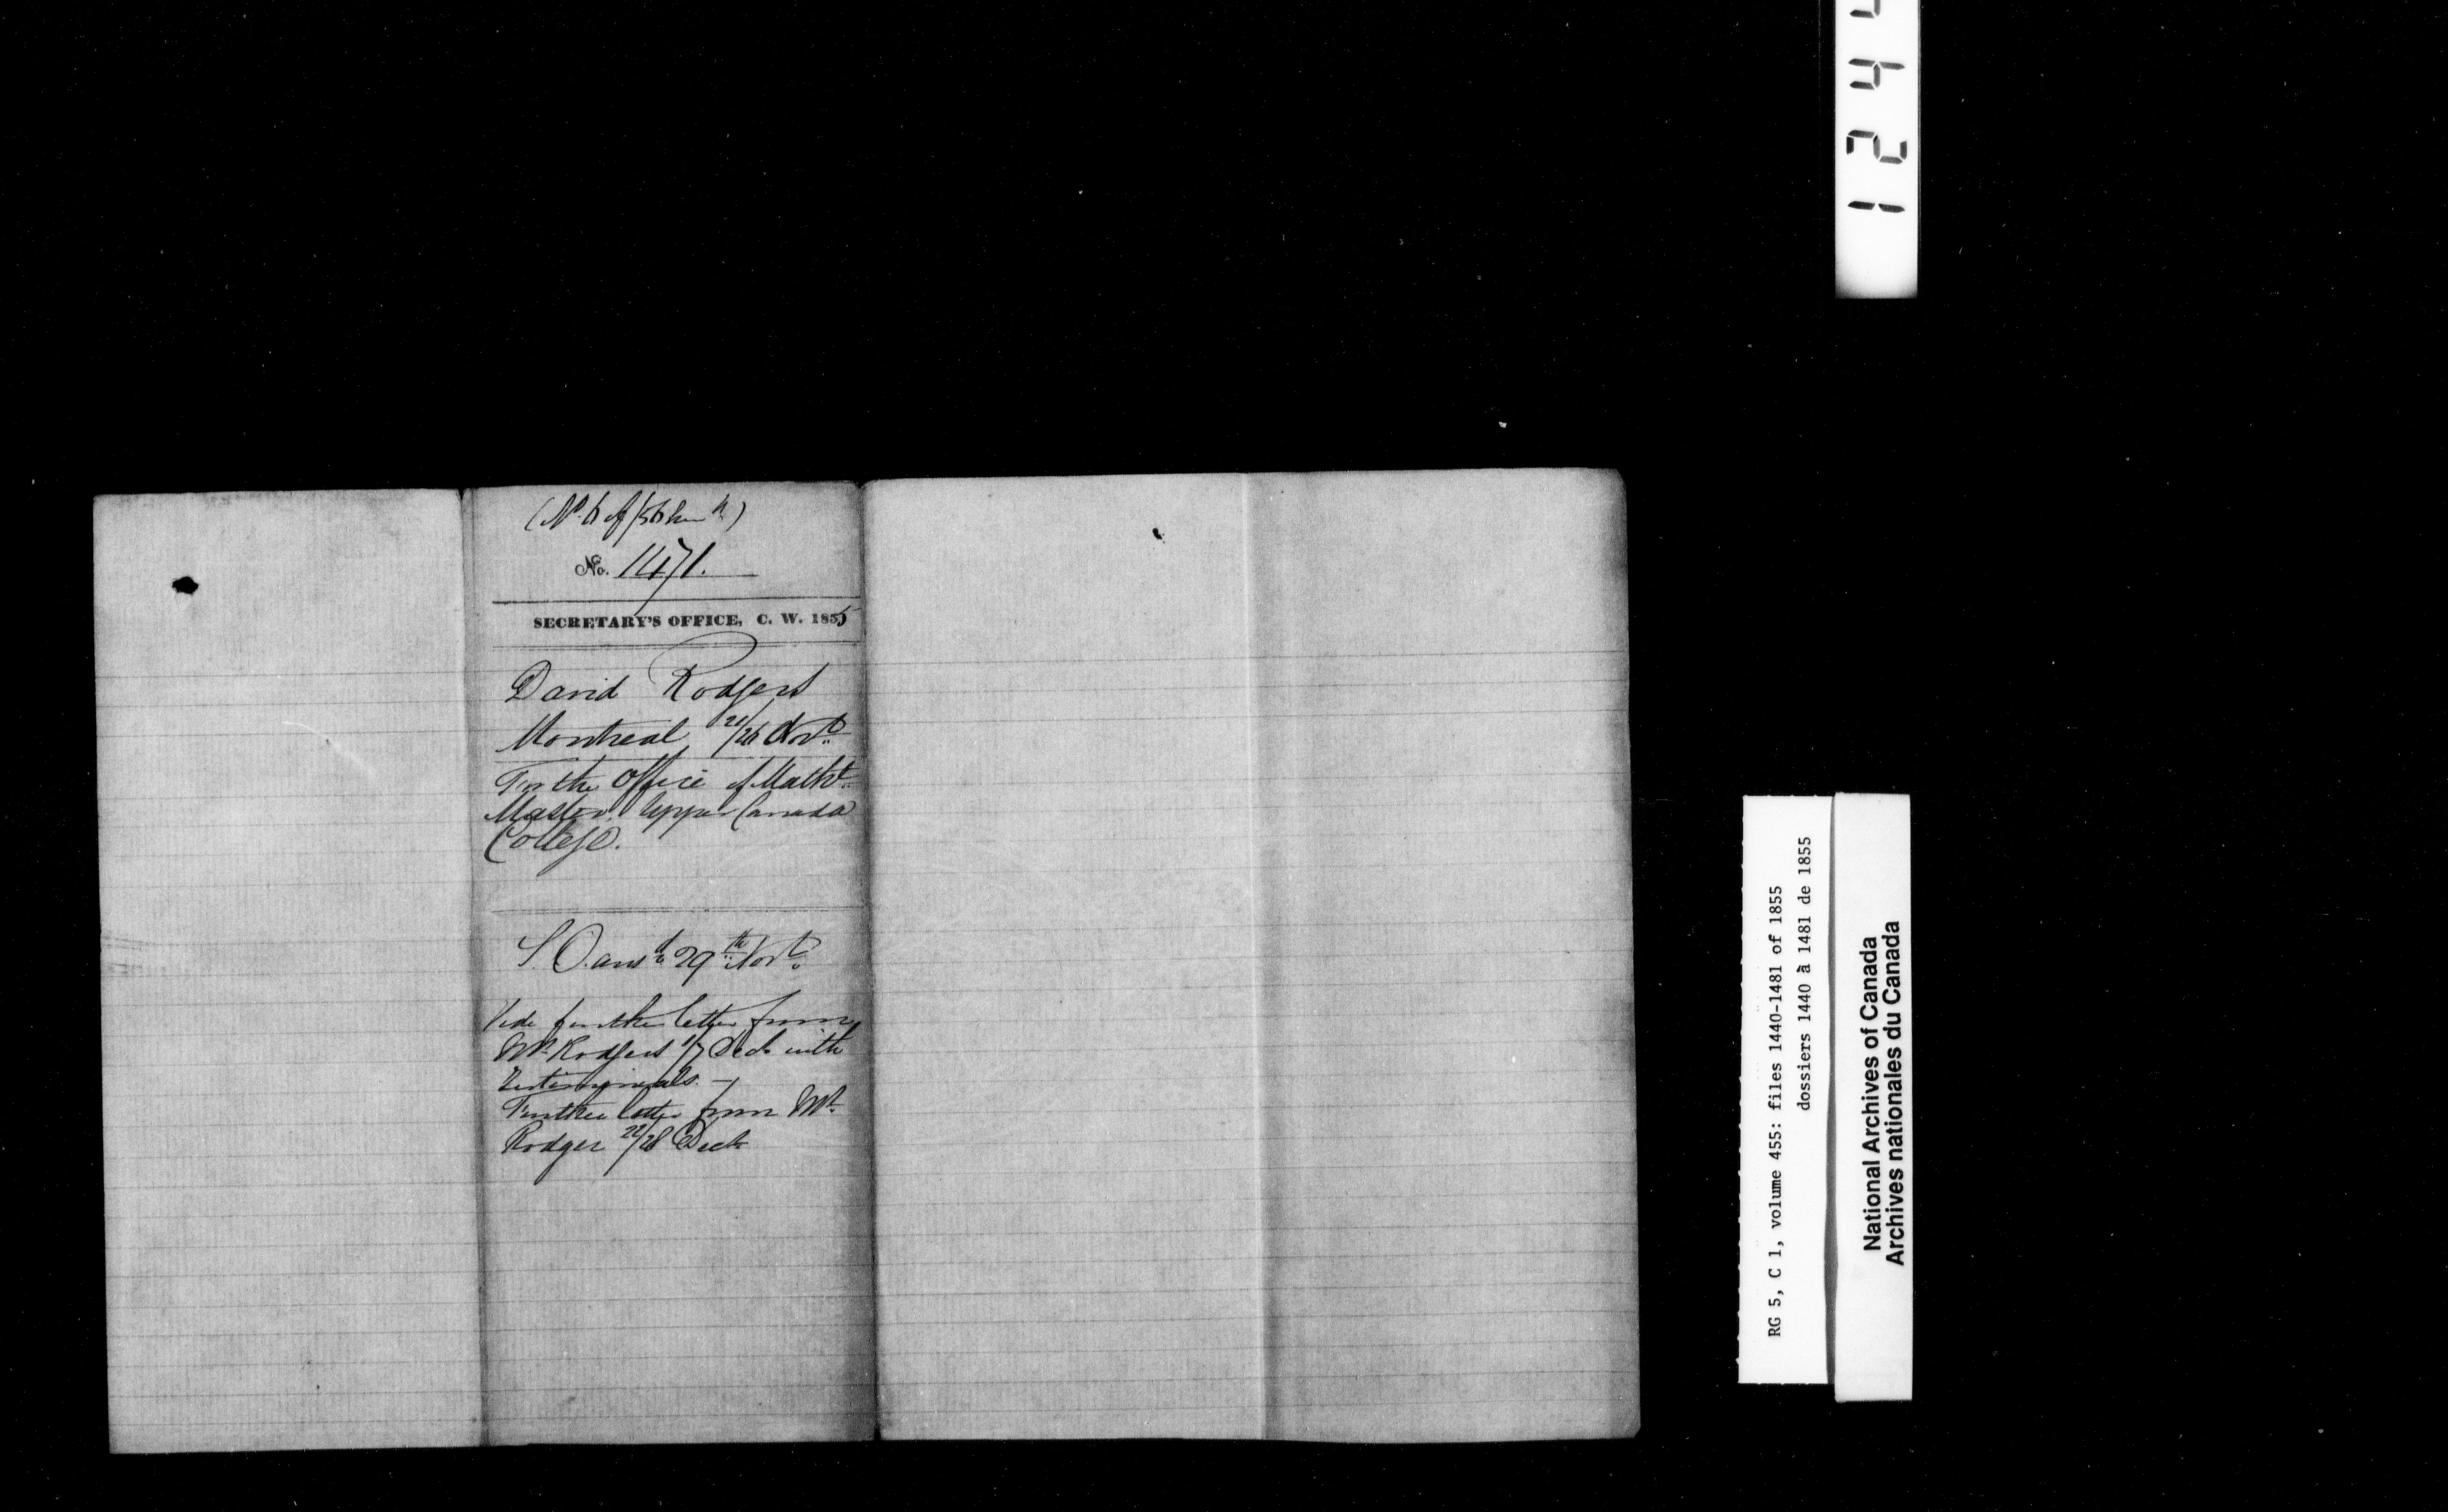 (No. 6 of /56 h)
No. 1471.
SECRETARY'S OFFICE, C. W. 1855
David Rodgers
Montreal 21/26 Novr.
For the Office of Matht.
Master. Upper Canada
College.
S. O. ansd. 29th Novr.
Vide further letter from
Mr. Rodgers 1/7 Decr with
testimonials. —
Further letter from Mr.
Rodger 22/28 Decr
1244
RG 5, C 1, volume 455: files 1440-1481 of 1855
dossiers 1440 à 1481 de 1855
National Archives of Canada
Archives nationales du Canada